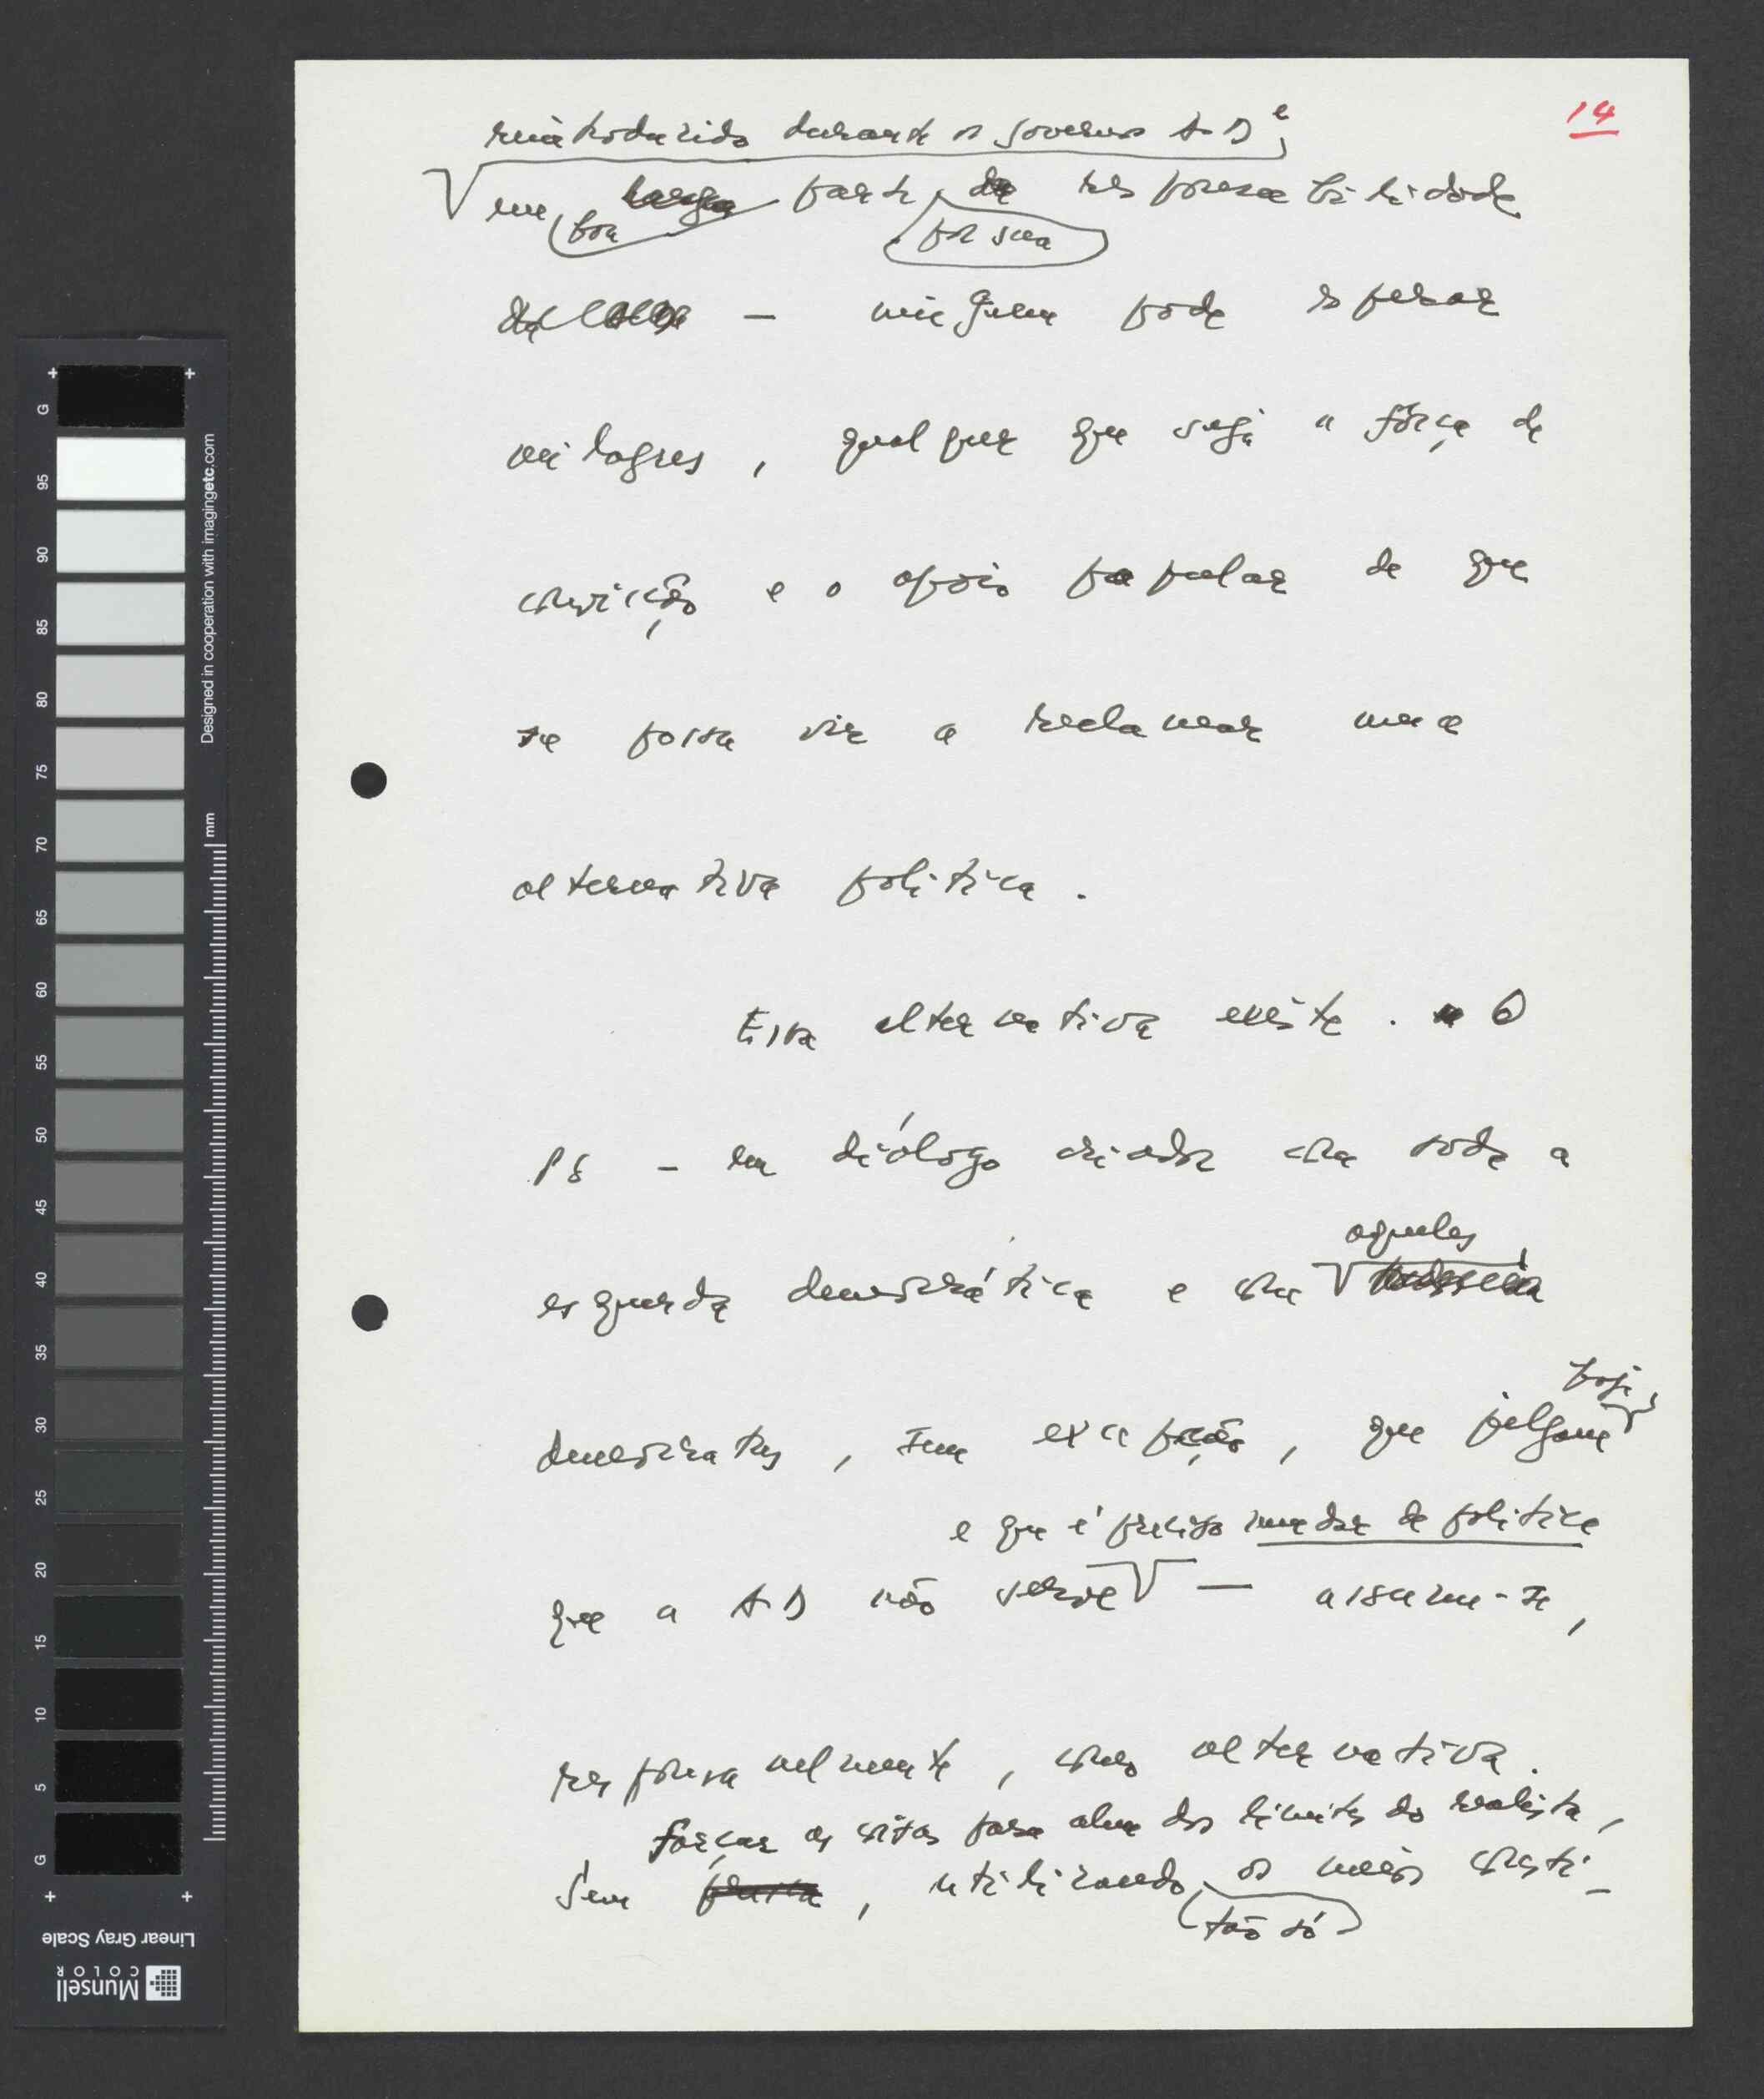 14
reintroduzido durante os governos AD e,
em larga parte, da responsabilidade
boa
por sua
— ninguem pode esperar
milagres, qualquer que seja a fôrça de
convicção e o apoio popular de que
se possa vir a reclamar uma
alternativa politica.
Essa alternativa existe. O
PS – em diálogo criador com toda a
aqueles
esquerda democrática e com
hoje
democratas, sem excepção, que julgam
e que é preciso mudar de politica
que a AD não serve — assume-se,
responsavelmente, como alternativa.
forçar as coisas para alem dos limites do realista,
Sem, utilizando os meios consti-
tão só
G
95
90
85
80
75
70
65
60
55
50
45
40
35
30
25
20
15
10
5
G
mm
Designed in cooperation with imagingetc.com
Linear Gray Scale
Munsell
COLOR